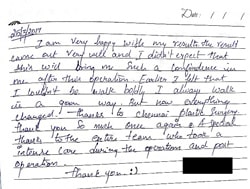 Date: / /
25/5/2017
I am very happy with my results. the result
came out very well and I didn't expect that
this will bring me such a confidence in
me after this operation. Earlier I felt that
I couldn't be walk boldly I always walk
in a gown way. But now everything
changed. thanks to chennai plastic surgery
thank you so much once again & special
thanks to the entire team who took a
intense care during the operation and post
operation.
Thank you :)